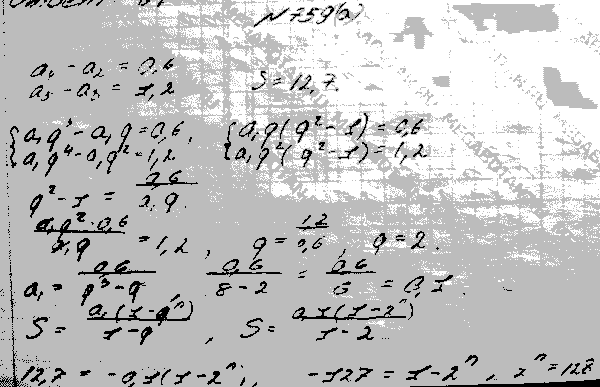 N 759(а)
a₄ - a₂ = 0,6
a₅ - a₃ = 1,2
S = 12,7.
{ a₁q³ - a₁q = 0,6, { a₁q(q² - 1) = 0,6
{ a₁q⁴ - a₁q² = 1,2 { a₁q²(q² - 1) = 1,2
q² - 1 = 0,6 / a₁q.
a₁q² · 0,6 / a₁q = 1,2, q = 1,2 / 0,6, q = 2.
a₁ = 0,6 / q³ - q, 0,6 / 8 - 2 = 0,6 / 6 = 0,1
S = a₁(1 - qⁿ) / 1 - q, S = 0,1(1 - 2ⁿ) / 1 - 2
12,7 = -0,1(1 - 2ⁿ), -127 = 1 - 2ⁿ, 2ⁿ = 128